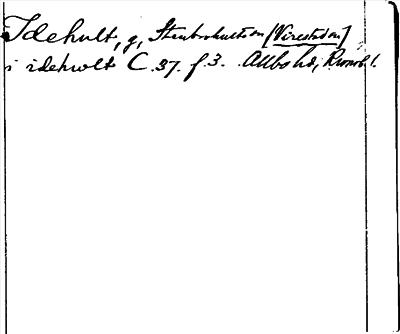 Idehult, g, Stenbrohultsn [Virestadsn]
i idehwlt C. 37. f. 3. Allbo hd, Kronob l.